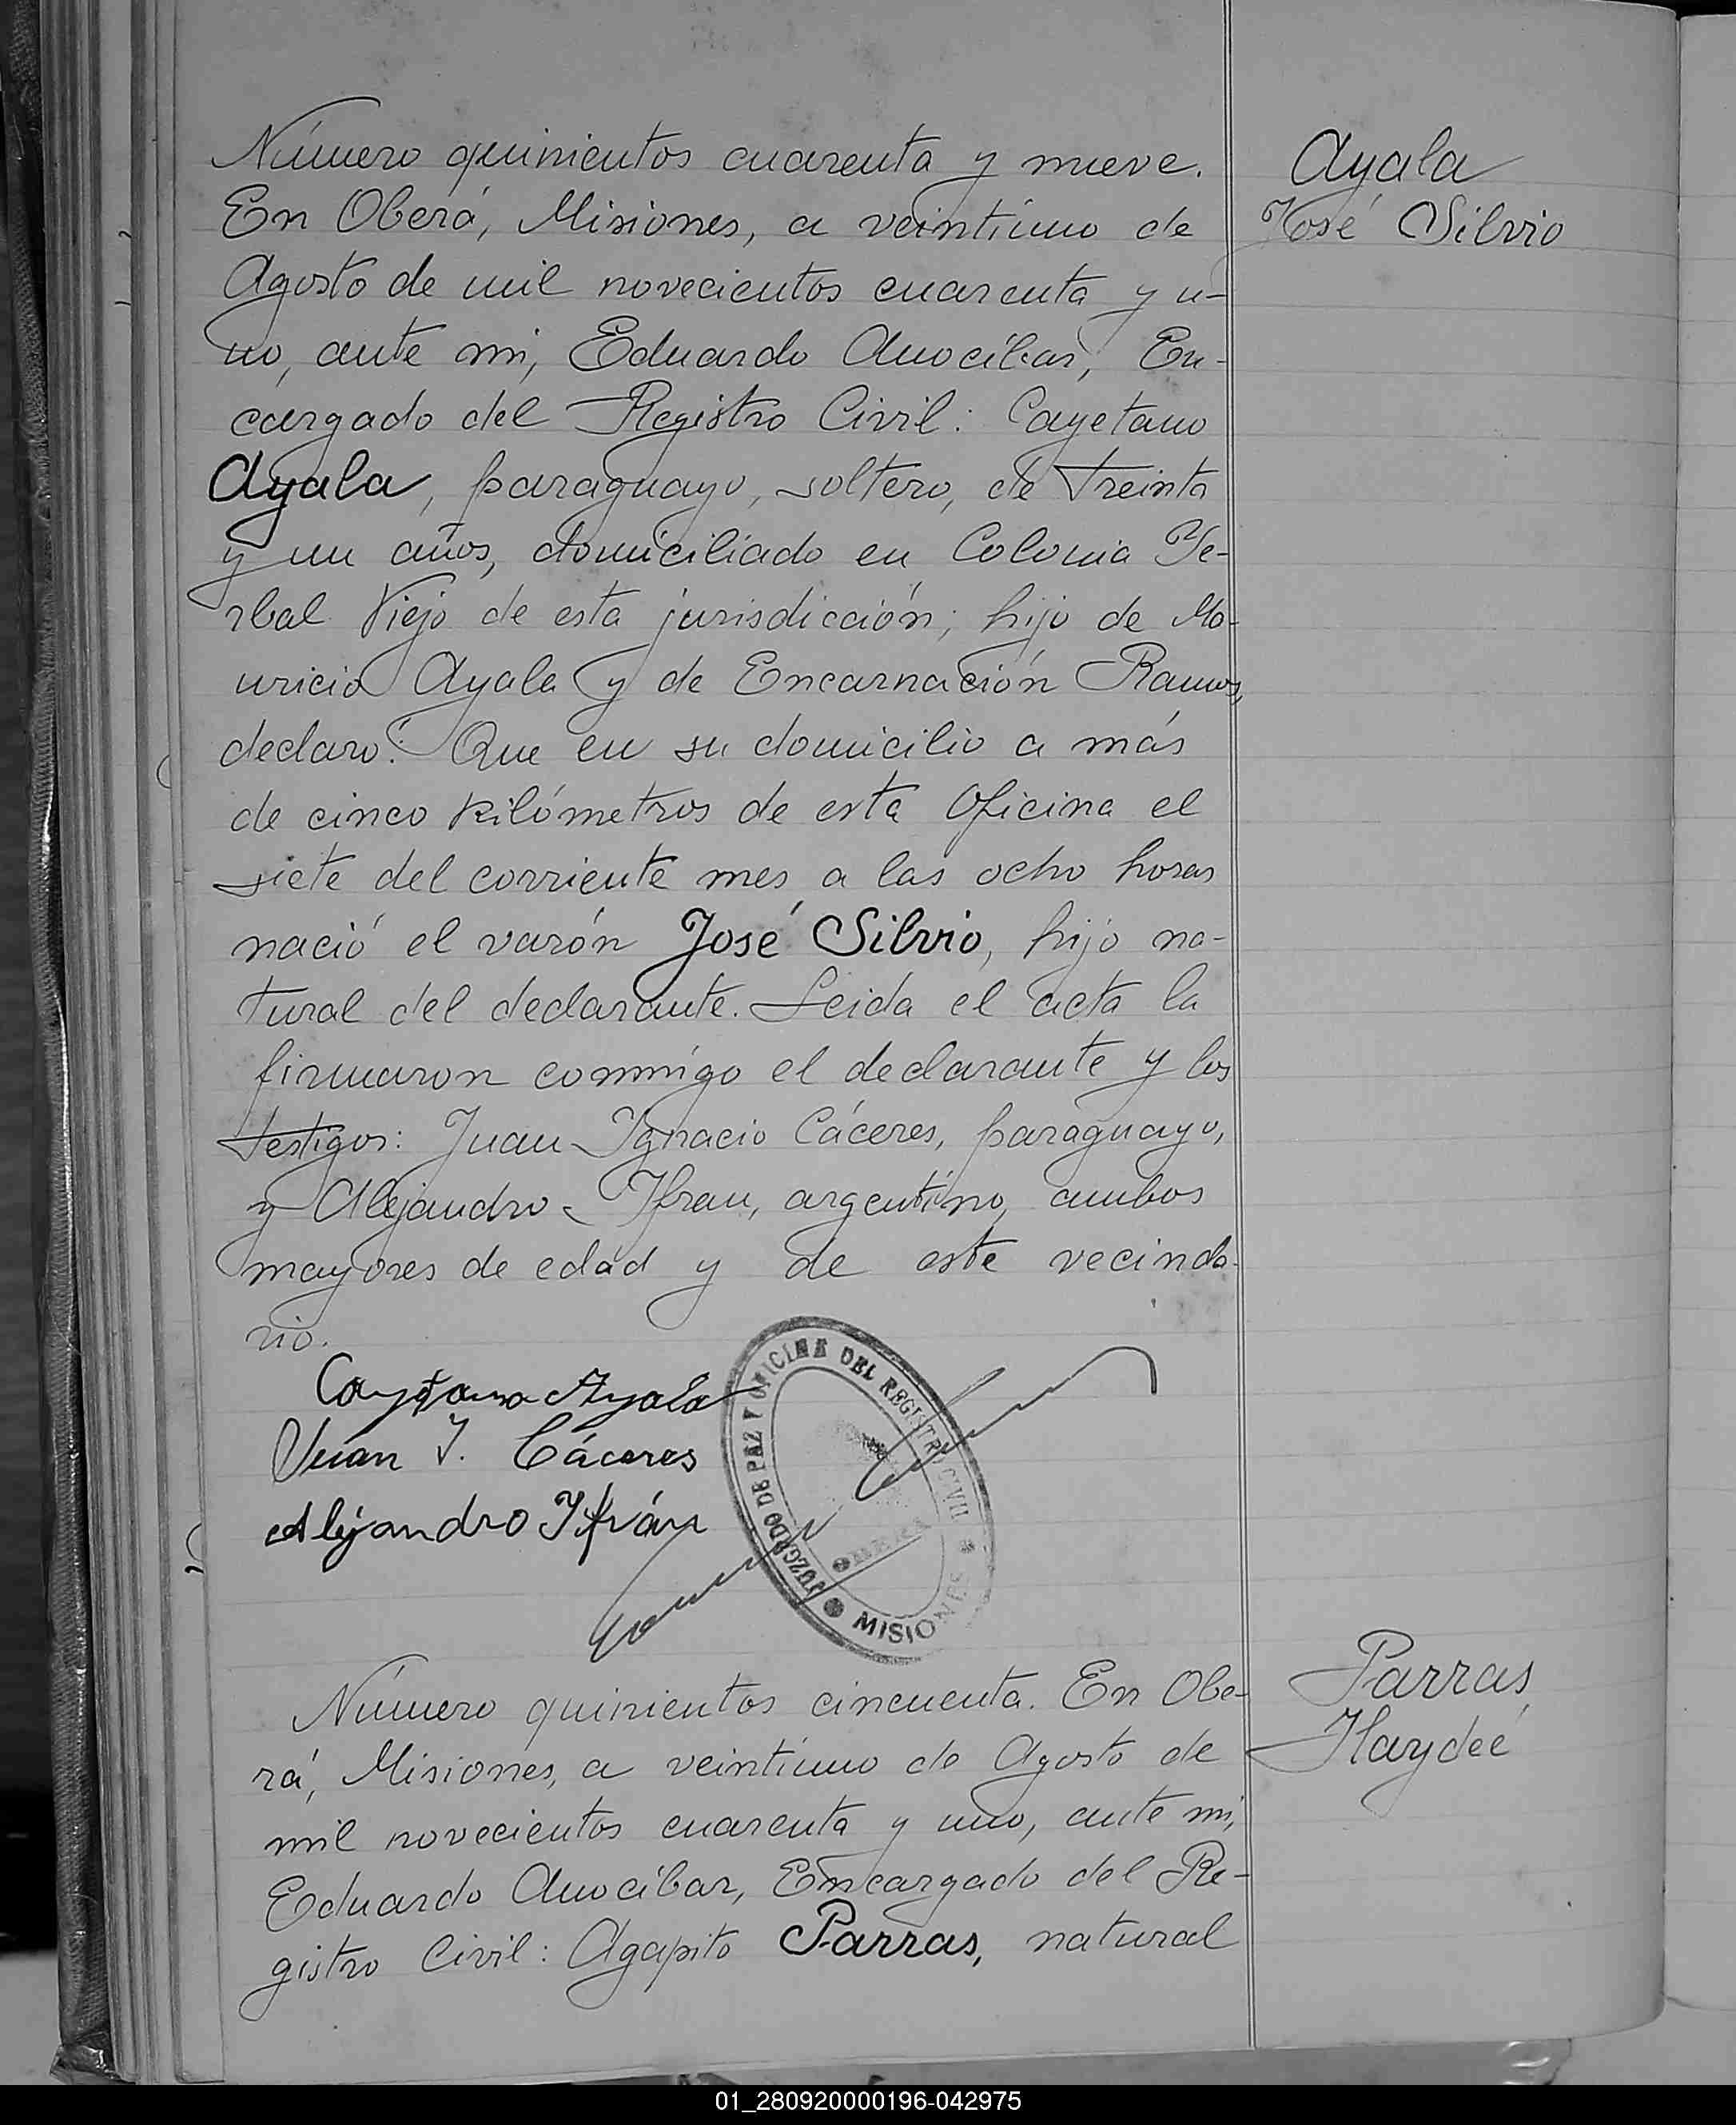 Número quinientos cuarenta y nueve.
En Oberá, Misiones, a veintiuno de
Agosto de mil novecientos cuarenta y u-
no, ante mi, Eduardo Anocíbar, En-
cargado del Registro Civil: Cayetano
Ayala, paraguayo, soltero, de treinta
y un años, domiciliado en Colonia Ye-
rbal Viejo de esta jurisdicción; hijo de Ma-
uricio Ayala y de Encarnación Ramos,
declaró: Que en su domicilio a más
de cinco kilómetros de esta Oficina el
siete del corriente mes a las ocho horas
nació el varón José Silvio, hijo na-
tural del declarante. Leida el acta la
firmaron conmigo el declarante y los
testigos: Juan Ygnacio Cáceres, paraguayo,
y Alejandro Yfran, argentino, ambos
mayores de edad y de este vecinda-
rio.
Cayetano Ayala
Juan I. Cáceres
Alejandro Yfrán
JUZGADO DE PAZ Y OFICINA DEL REGISTRO CIVIL
MISIONES
Ayala
José Silvio
Número quinientos cincuenta. En Obe-
rá, Misiones, a veintiuno de Agosto de
mil novecientos cuarenta y uno, ante mi,
Eduardo Anocíbar, Encargado del Re-
gistro Civil: Agapito Parras, natural
Parras
Haydeé
01_280920000196-042975